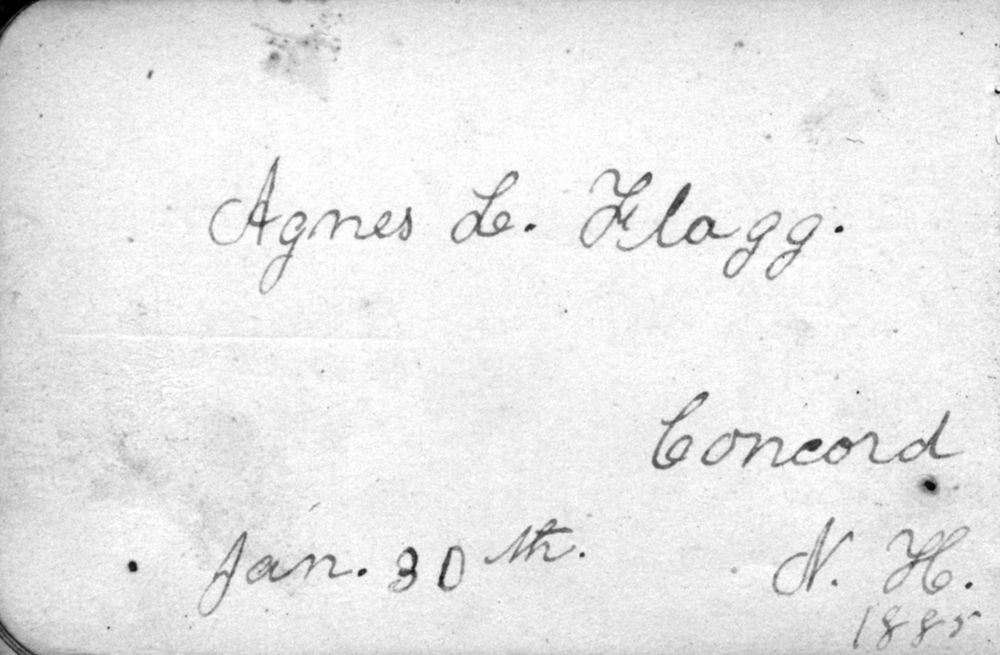 Agnes L. Flagg.
Concord
Jan. 30th. N. H.
1885